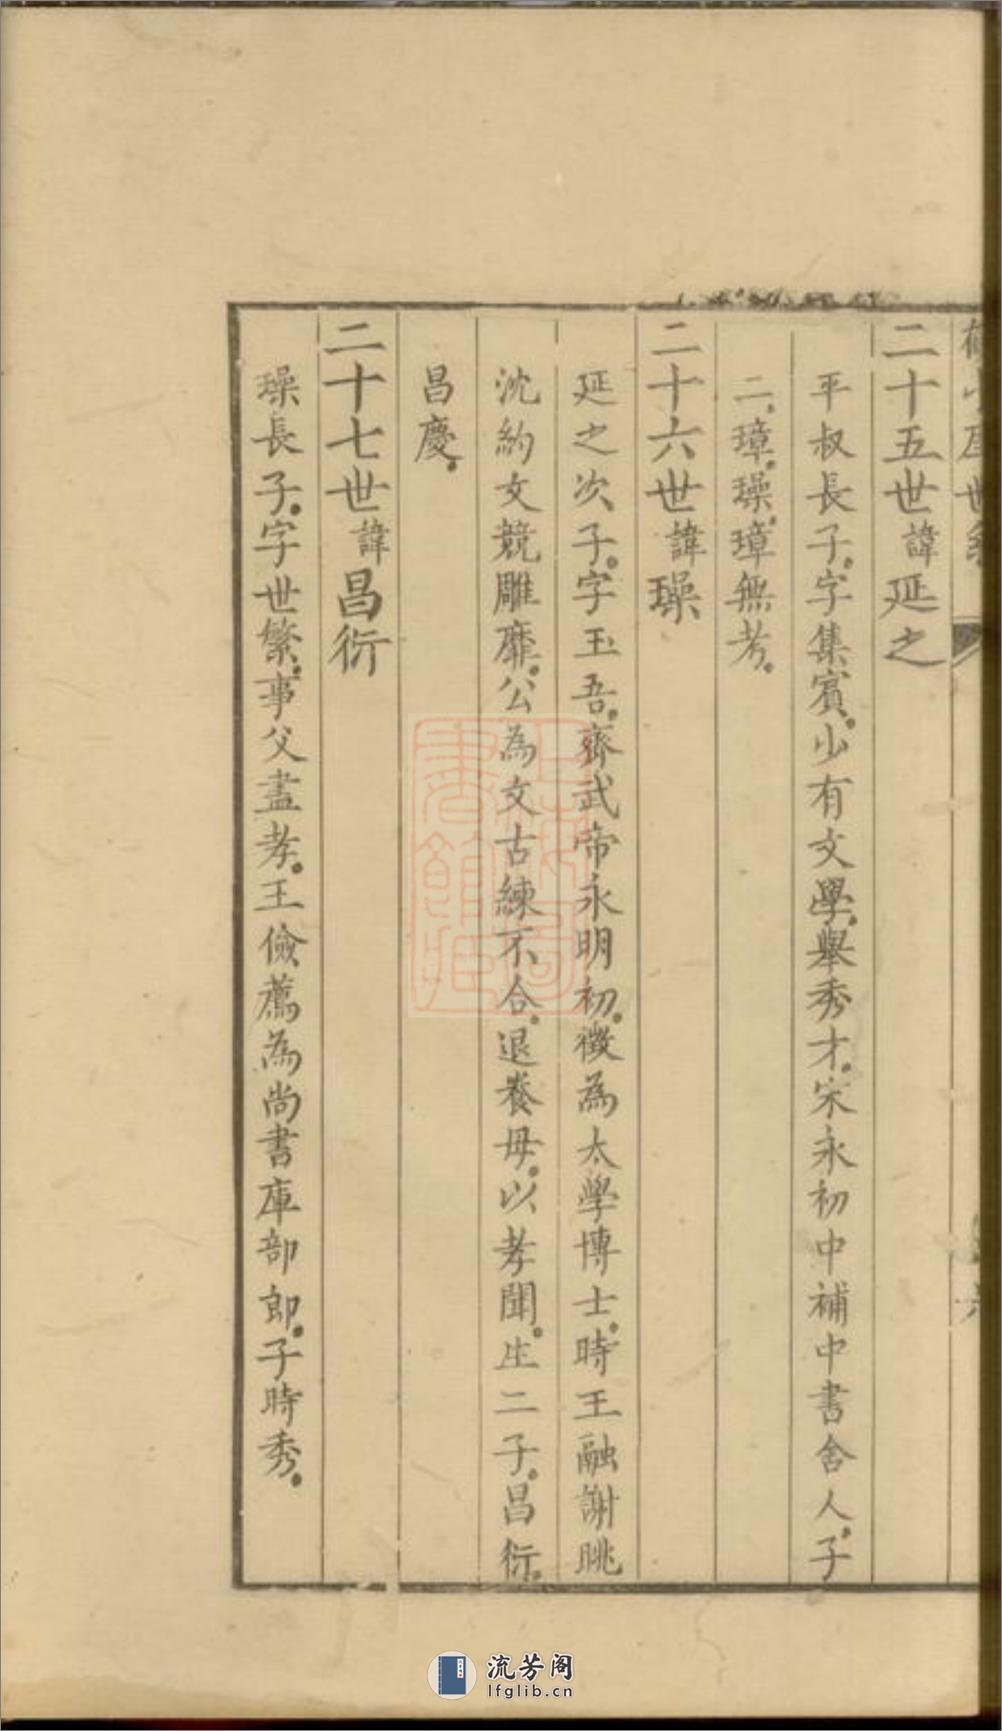 二十五世諱延之
平叔長子。字集賓。少有文學。舉秀才。宋永初中補中書舍人。子
二。璋。璪。璋無考。
二十六世諱璪
延之次子。字玉吾。齊武帝永明初。徵為太學博士。時王融謝眺
沈約文競雕靡。公為文古練不合。退養母。以孝聞。生二子。昌衍。
昌慶。
二十七世諱昌衍
璪長子。字世繁。事父盡孝。王儉薦為尚書庫部郎。子時秀。
流芳阁
lfglib.cn